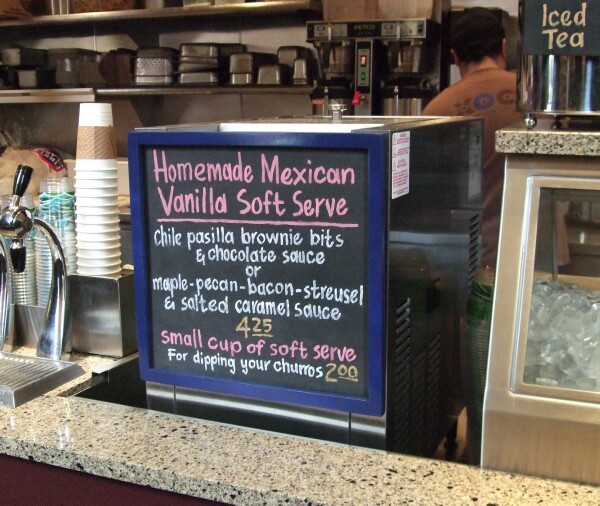 Iced
Tea
FETCO
Homemade Mexican
Vanilla Soft Serve
Chile pasilla brownie bits
& chocolate sauce
or
maple-pecan-bacon-streusel
& salted caramel sauce
4.25
small cup of soft serve
For dipping your churros 2.00